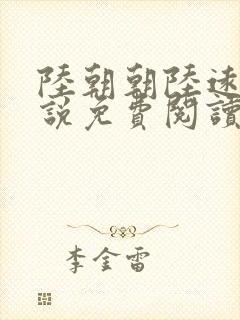 陸朝朝陸遠
說免費閱讀
李金雷